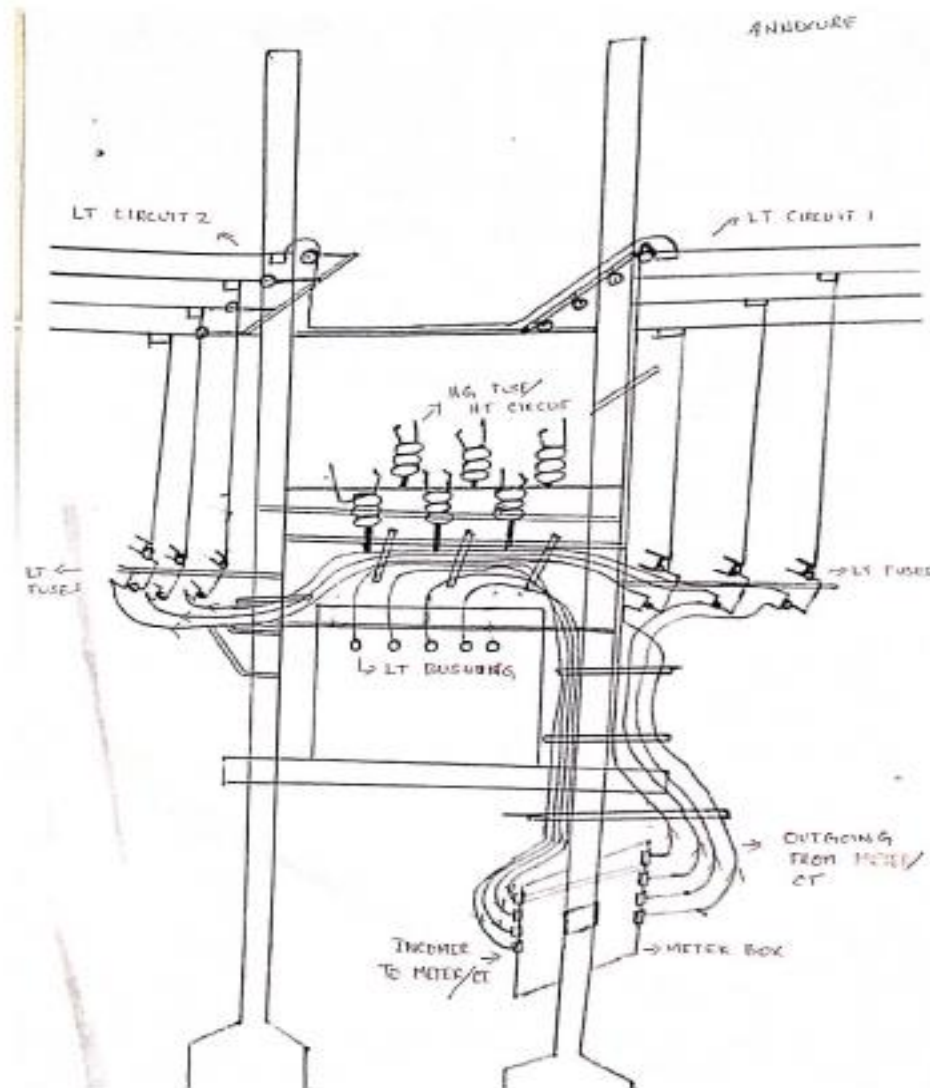 ANNEXURE
LT CIRCUIT 2
LT CIRCUIT 1
HG FUSE/
HT CIRCUIT
LT
FUSES
LT FUSES
LT BUSHING
OUTGOING
FROM METER/
CT
INCOMER
TO METER/CT
METER BOX